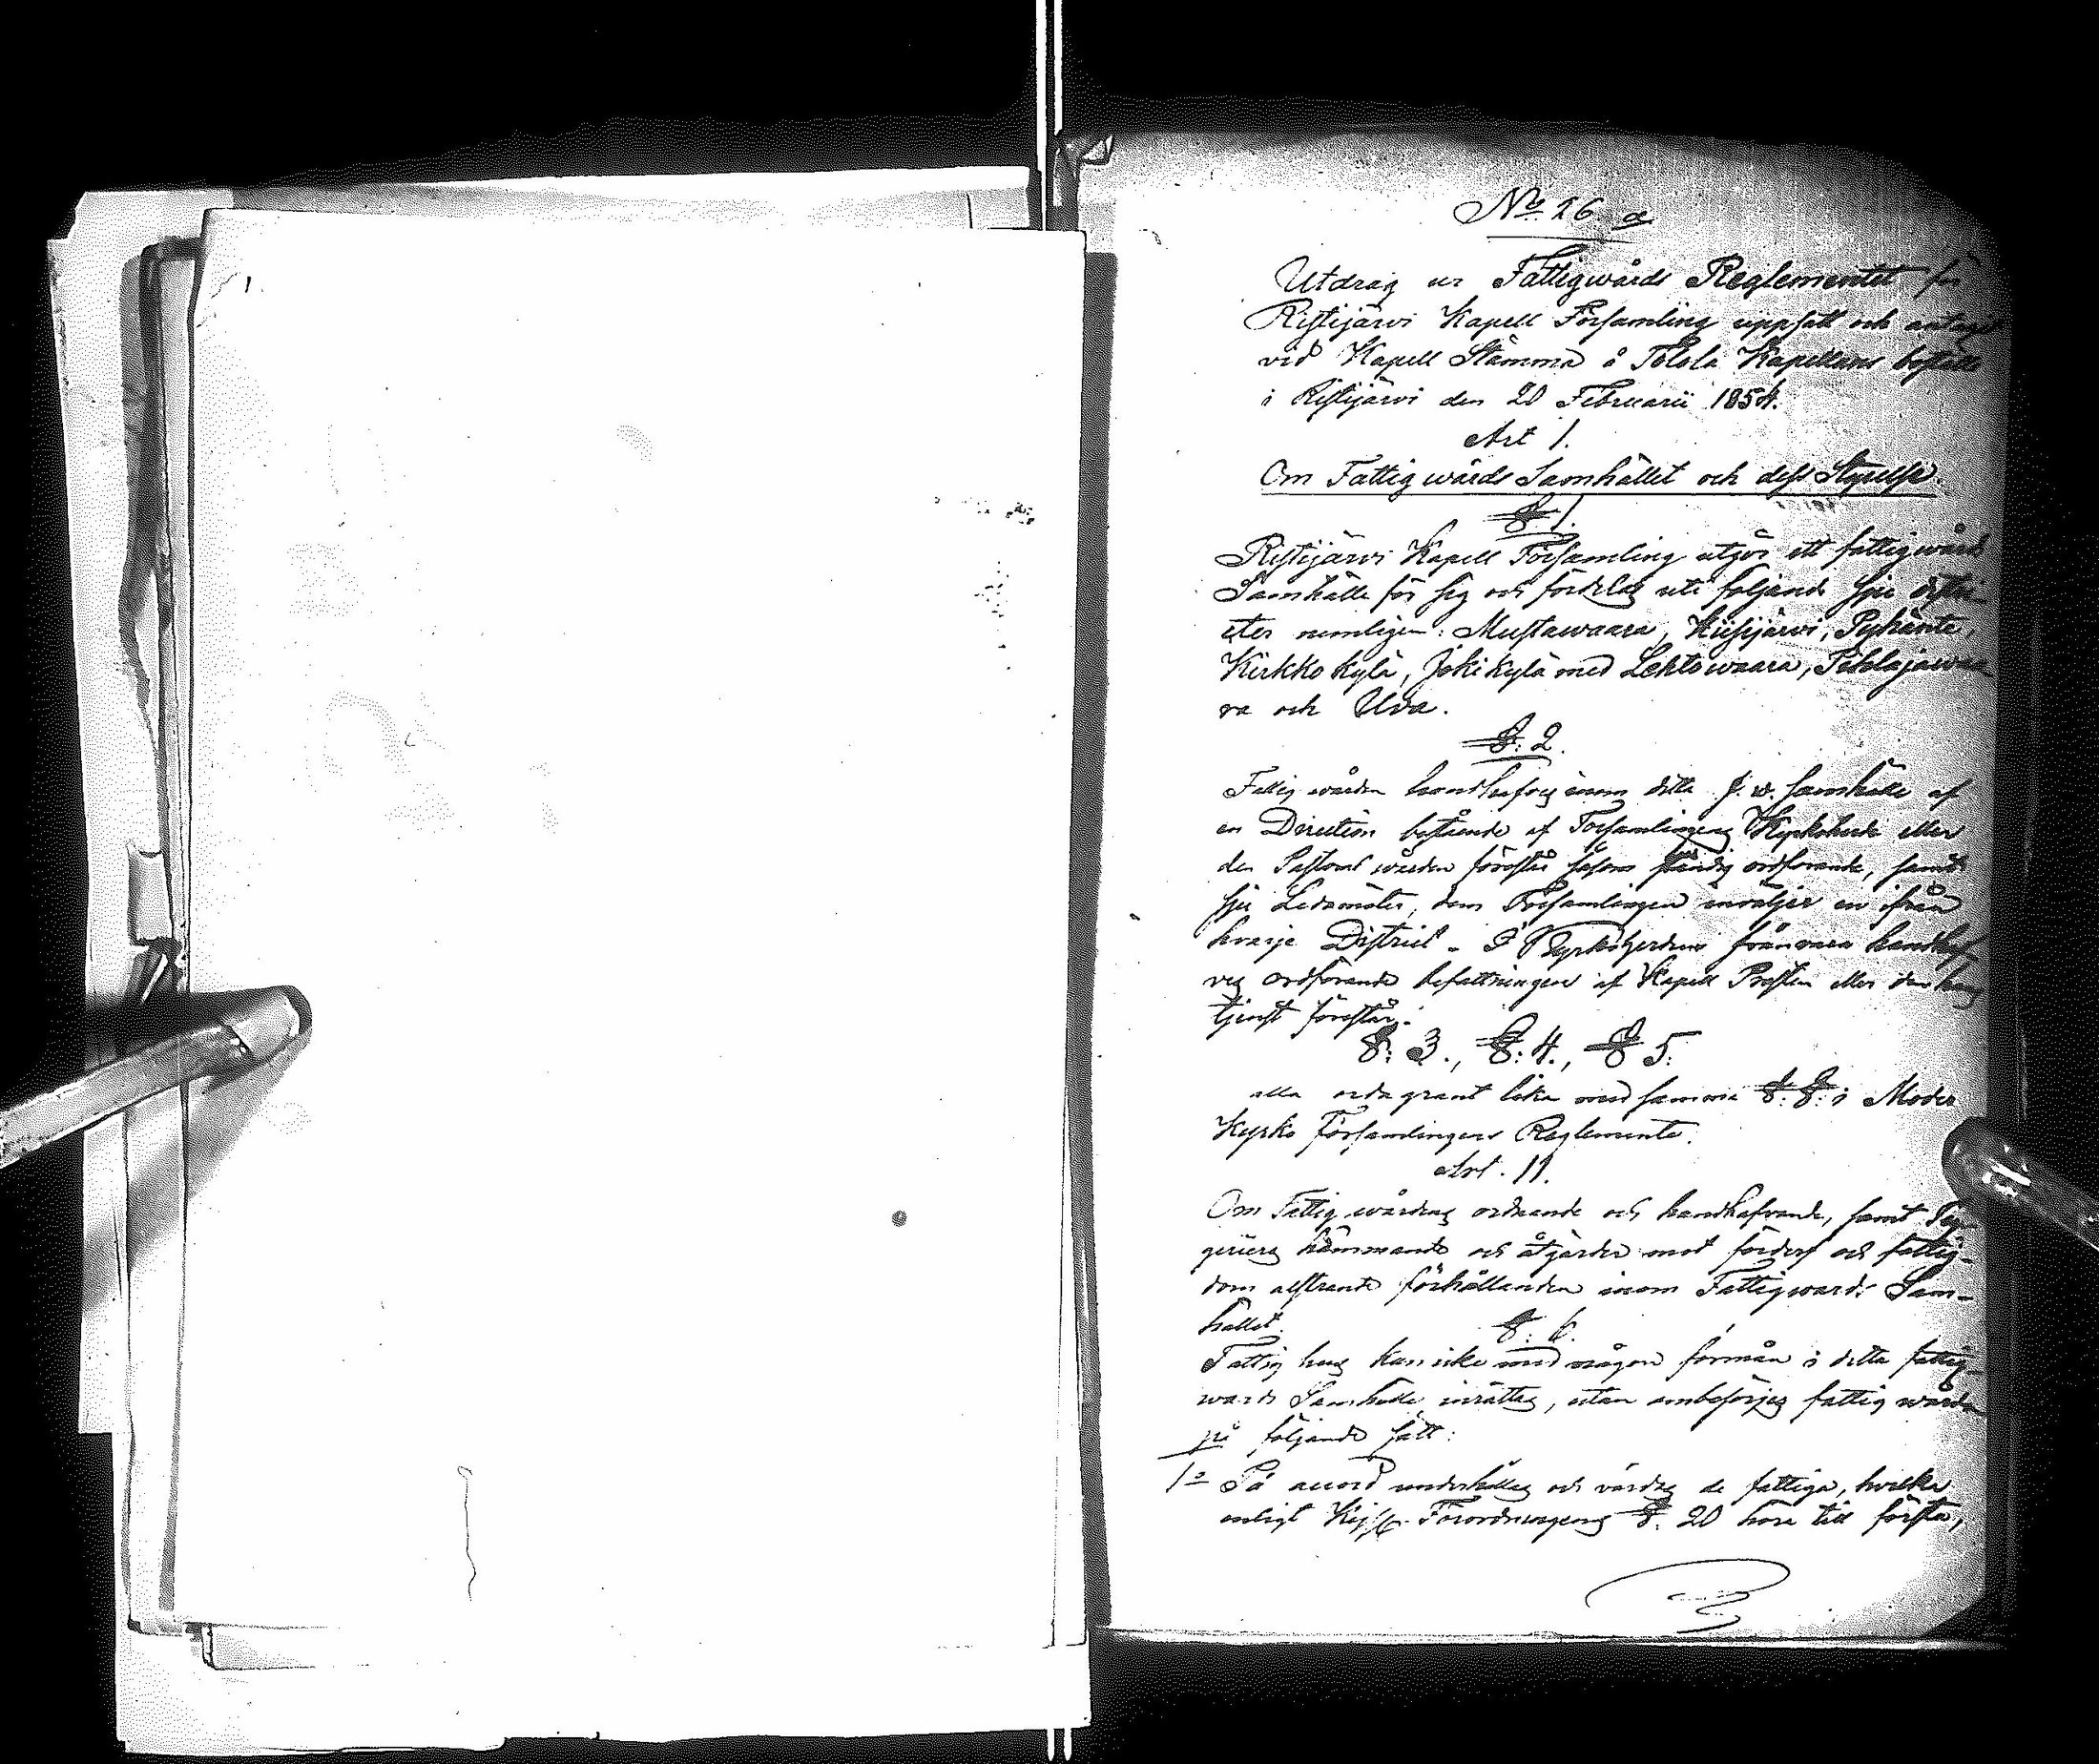 No 26 a
Utdrag ur Fattigwårds Reglementet för
Ristijärwi Kapell Församling uppsatt och antaget
vid Kapell Stämma å Tolola Kapellans boställe
i Ristijärwi den 20 Februarii 1854.
Art 1.
Om Fattigwårds Samhället och dess Styrelse.
§ 1.
Ristijärwi Kapell Församling utgör ett fattigwårds
Samhälle för sig och fördelas uti följande sju distri-
cter nemligen: Mustawaara, Hiisijärwi, Pyhänte,
Kirkko kylä, Jokikylä med Lehtowaara, Tololajawaa
ra och Uva.
§. 2.
Fattig wården handhafves inom detta f. w. Samhälle af
en Direction bestående af Församlingens Kyrkoherde eller
den Pastorswården förestår såsom ständig ordförande, samt
sju Ledamöter, dem Församlingen inväljer en ifrån
hvarje District. I Kyrkoherdens frånvaro handhaf-
ves ordförande befattningen af Kapell Prosten eller den hans
tjenst förestår.
§. 3., §. 4., § 5.
alla ordagrant lika med samma §. §. i Moder
Kyrko Församlingens Reglemente.
Art. 11.
Om Fattigwårdens ordnande och handhafvande, samt Tig-
geriers hämmande och åtgärder mot förderf och fattig-
dom alstrande förhållanden inom Fattigwards Sam-
hället.
§. 6.
Fattig hus kan icke med någon förmån i detta fattig-
wards Samhälle inrättas, utan ombesörjes fattig wården
på följande sätt:
1o På accord underhållas och vårdas de fattiga, hvilka
enligt Förordningens §. 20 höra till första,